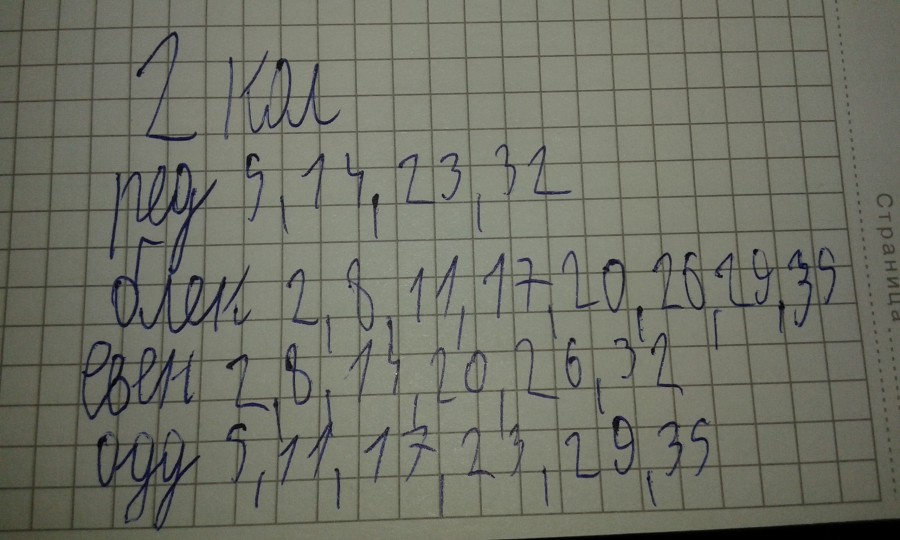 2 кол
ред 5,14,23,32
блек 2,8,11,17,20,26,29,35
евен 2,8,14,20,26,32
одд 5,11,17,23,29,35
Страница